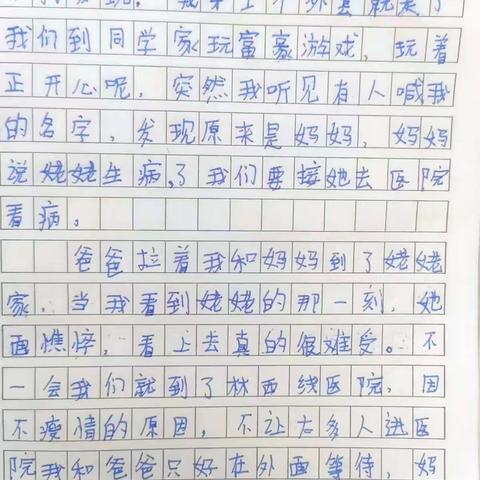 我们到同学家玩富豪游戏，玩着
正开心呢，突然我听见有人喊我
的名字，发现原来是妈妈，妈妈
说姥姥生病，了我们要接她去医院
看病。
爸爸拉着我和妈妈到了姥姥
家，当我看到姥姥的那一刻，她
面憔悴，看上去真的很难受。不
一会我们就到了林西线医院，因
不瘦情的原因，不让太多人进医
院我和爸爸只好在外面等待，妈